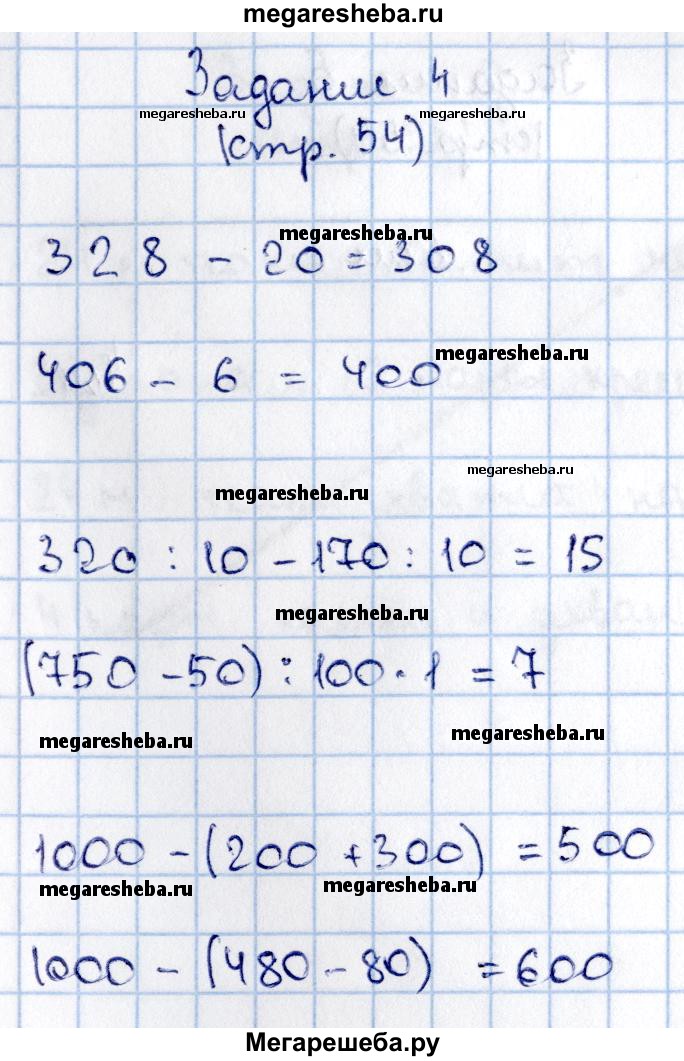 megaresheba.ru
Задание 4
megaresheba.ru megaresheba.ru
(стр. 54)
megaresheba.ru
328 - 20 = 308
megaresheba.ru
406 - 6 = 400
megaresheba.ru
megaresheba.ru
320 : 10 - 170 : 10 = 15
megaresheba.ru
(750 - 50) : 100 · 1 = 7
megaresheba.ru megaresheba.ru
1000 - (200 + 300) = 500
megaresheba.ru megaresheba.ru
1000 - (480 - 80) = 600
Мегарешеба.ру